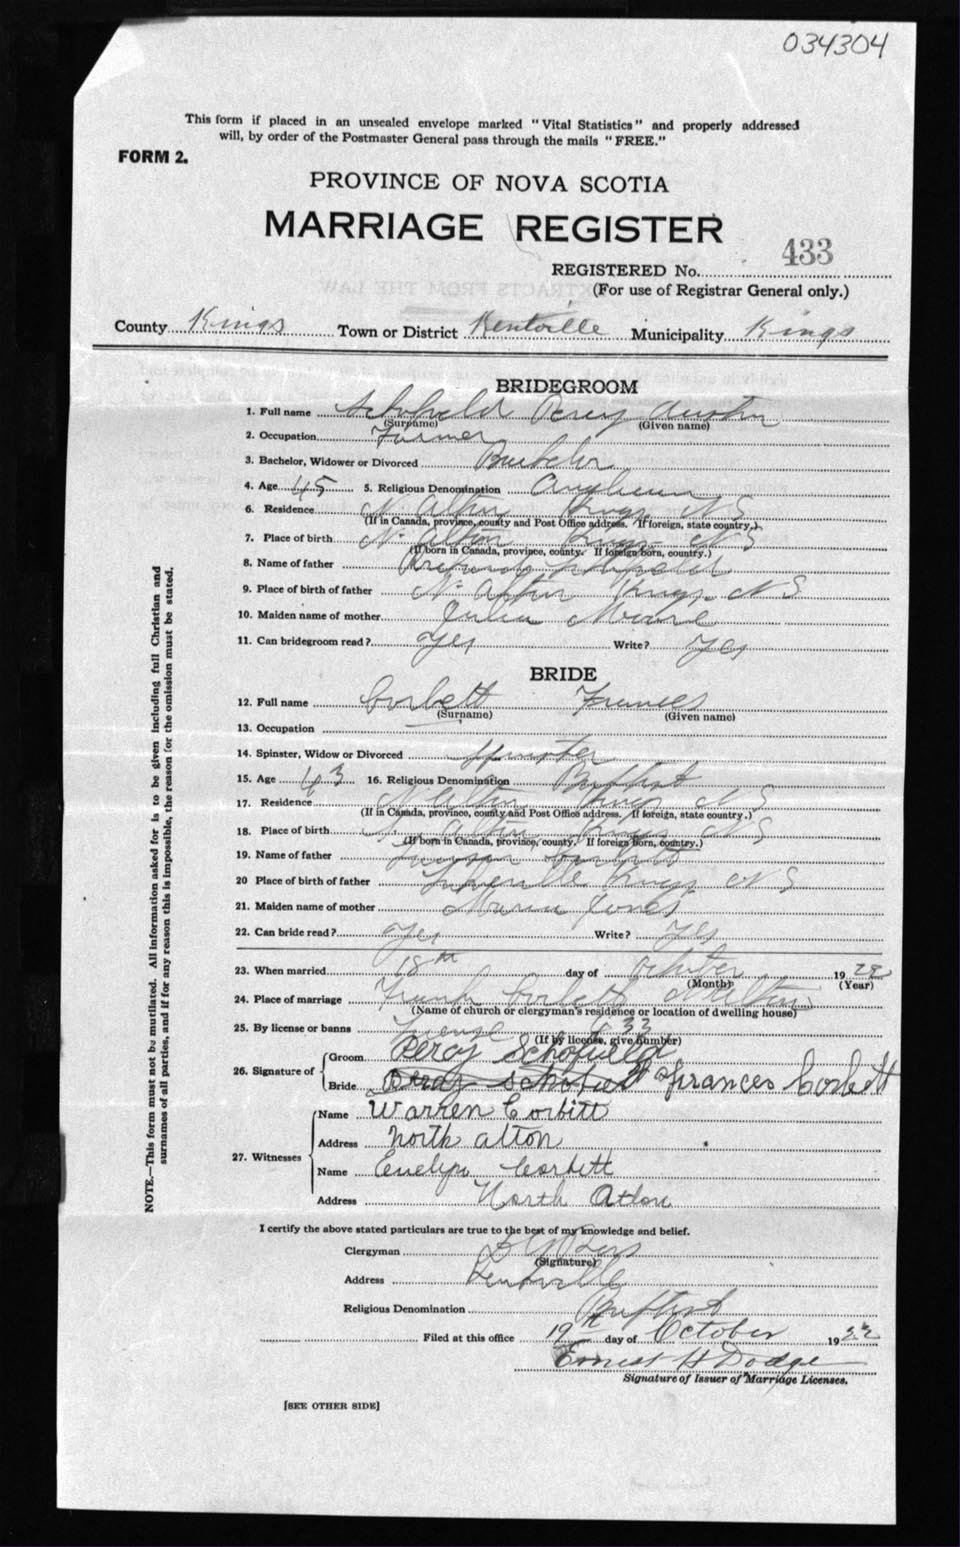 034304
This form if placed in an unsealed envelope marked "Vital Statistics" and properly addressed
will, by order of the Postmaster General pass through the mails "FREE."
FORM 2.
PROVINCE OF NOVA SCOTIA
MARRIAGE REGISTER
REGISTERED No. 433
(For use of Registrar General only.)
County Kings Town or District Kentville Municipality Kings
BRIDEGROOM
1. Full name Schofield Percy Austin
(Surname) (Given name)
2. Occupation Farmer
3. Bachelor, Widower or Divorced Bachelor
4. Age 45 5. Religious Denomination
6. Residence N. Alton Kings N S
(If in Canada, province, county and Post Office address. If foreign, state country.)
7. Place of birth N. Alton Kings N S
(If born in Canada, province, county. If foreign born, country.)
8. Name of father Schofield
9. Place of birth of father N. Alton Kings N S
10. Maiden name of mother Julia Moore
11. Can bridegroom read? Yes Write? Yes
BRIDE
12. Full name Corbett Frances
(Surname) (Given name)
13. Occupation
14. Spinster, Widow or Divorced Spinster
15. Age 43 16. Religious Denomination Baptist
17. Residence N. Alton Kings N S
(If in Canada, province, county and Post Office address. If foreign, state country.)
18. Place of birth N. Alton Kings N S
(If born in Canada, province, county. If foreign born, country.)
19. Name of father Corbett
20 Place of birth of father Kings N S
21. Maiden name of mother Jones
22. Can bride read? Yes Write? Yes
23. When married 18th day of October 1922
(Month) (Year)
24. Place of marriage Frank Corbett N Alton
(Name of church or clergyman's residence or location of dwelling house)
25. By license or banns License 633
(If by license, give number)
26. Signature of Groom Percy Schofield
Bride Percy Schofield Frances Corbett
27. Witnesses Name Warren Corbitt
Address North Alton
Name Evelyn Corbett
Address North Alton
I certify the above stated particulars are true to the best of my knowledge and belief.
Clergyman
(Signature)
Address Kentville
Religious Denomination Baptist
Filed at this office 19th day of October 1922
Ernest H Dodge
Signature of Issuer of Marriage Licenses.
[SEE OTHER SIDE]
NOTE.—This form must not be mutilated. All information asked for is to be given including full Christian and
surnames of all parties, and if for any reason this is impossible, the reason for the omission must be stated.